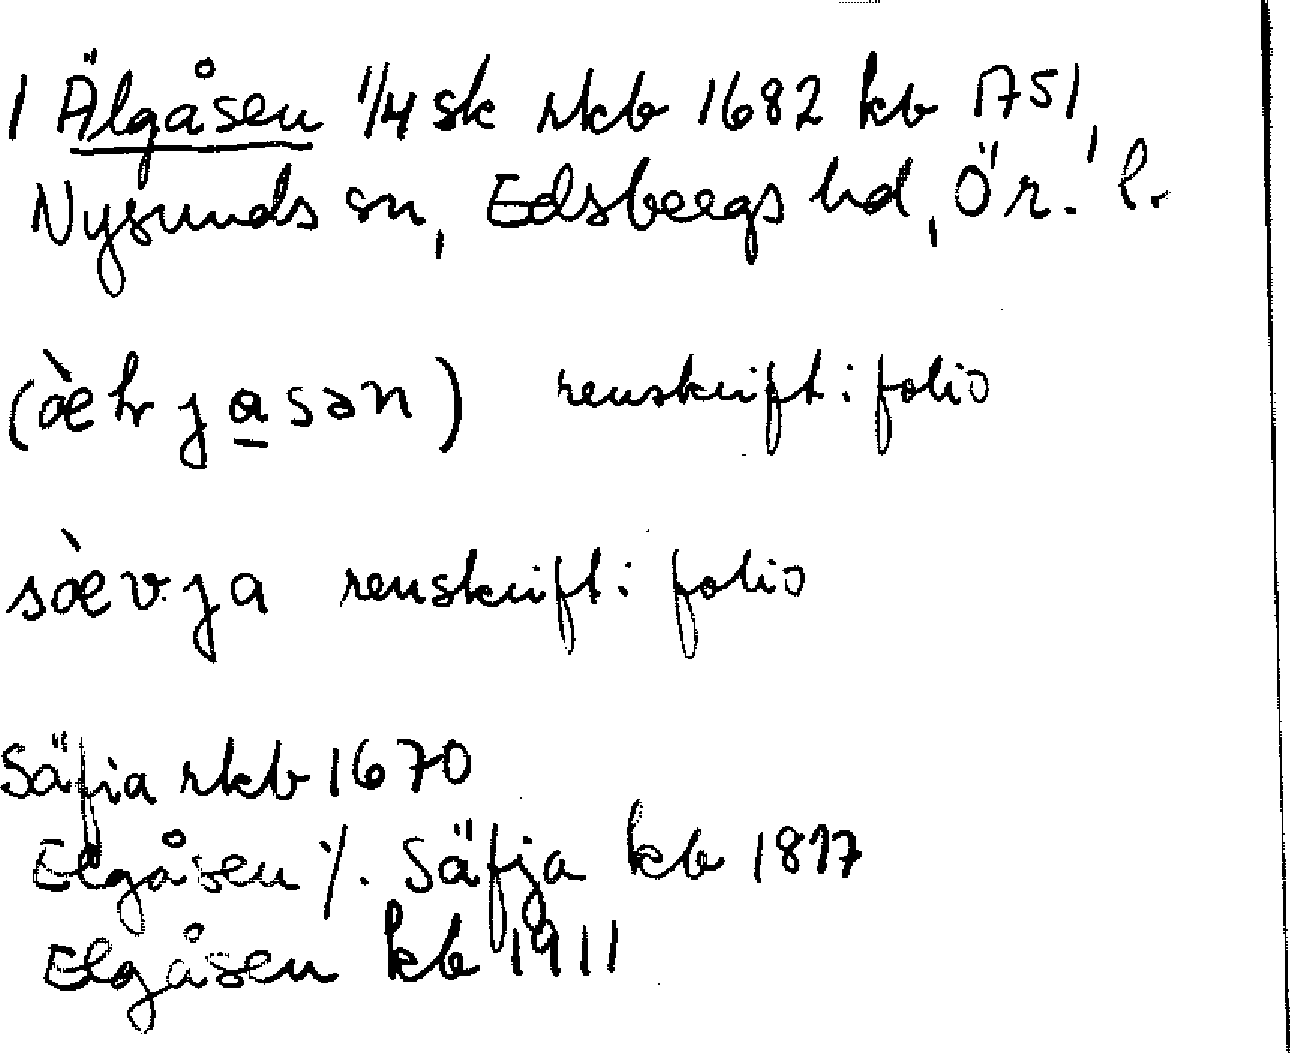 1 Älgåsen 1/4 sk rkb 1682 kb 1751,
Nysunds sn, Edsbergs hd, Ör. l.
(æ̀lrɟa̲sən) renskrift: folio
sæ̀vja renskrift: folio
Säfia rkb 1670
Elgåsen /. Säfja kb 1817
Elgåsen kb 1911